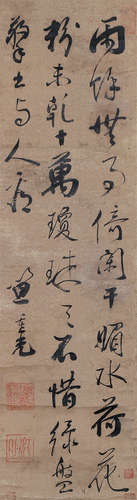 雨餘無事倚闌干媚水荷花
粉未乾十萬瓊珠天不惜綠盤
擎出與人看 笪重光